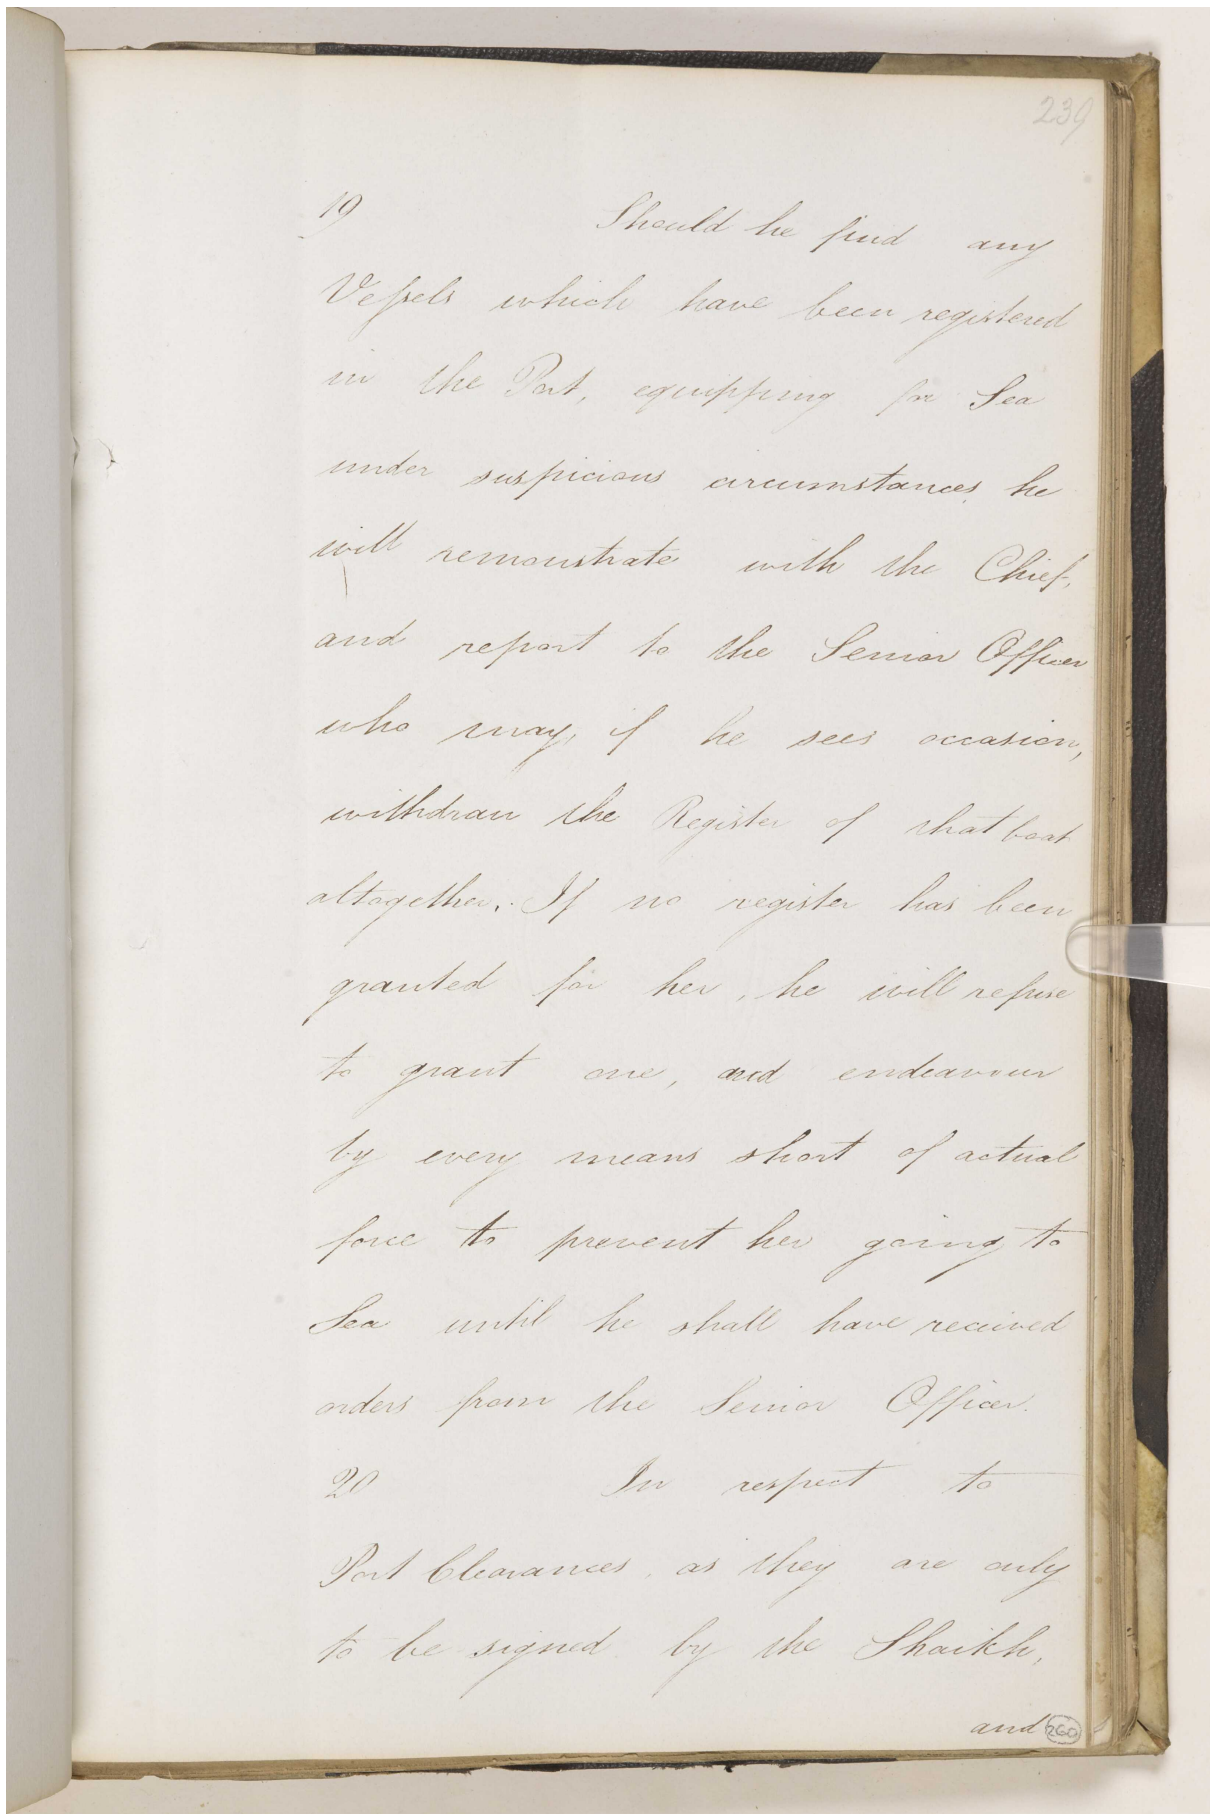 239
19 Should he find any
Veſsels which have been registered
in the Port, equipping for Sea
under suspicious circumstances, he
will remonstrate with the Chief,
and report to the Senior Officer
who may, if he sees occasion,
withdraw the Register of that boat
altogether. If no register has been
granted for her, he will refuse
to grant one, and endeavour
by every means short of actual
force to prevent her going to
Sea until he shall have received
orders from the Senior Officer.
20 In respect to
Port Clearances, as they are only
to be signed by the Shaikh,
and
260